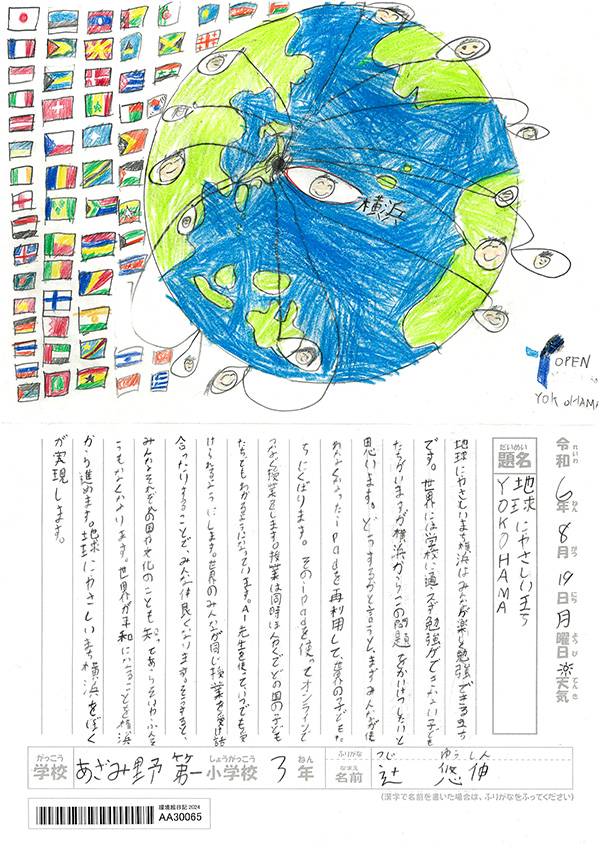 横浜
OPEN
YOKOHAMA
令和6年8月19日月曜日
天気
れいわ ねん がつ にち ようび てんき
だいめい
題名
地球にやさしいまち
YOKOHAMA
地球にやさしいまち横浜はみんなが楽しく勉強できるまち
です。世界には学校に通えず勉強ができない子ども
たちがいますが横浜からこの問題をかいけつしたいと
思います。どうするかと言うと、まずみんなが使
わなくなったipadを再利用して、世界の子どもた
ちにくばります。そのipadを使ってオンラインで
つなぐ授業をします。授業は同時ほんやくでどの国の子ども
たちでもわかるようになっています。AI先生を使っていつでも受
けられるようにします。世界のみんなが同じ授業を受け話
合ったりすることで、みんな仲良くなります。そうすると、
みんなそれぞれの国や文化のことも知ってあらそいやふんそ
うもなくなります。世界が平和になることを横浜
から進めます。地球にやさしいまち横浜をぼく
が実現します。
がっこう
学校
あざみ野第一
しょうがっこう
小学校
3
ねん
年
ふりがな
つじ ゆう しん
なまえ
名前
辻 悠伸
(漢字で名前を書いた場合は、ふりがなをふってください)
環境絵日記2024
AA30065